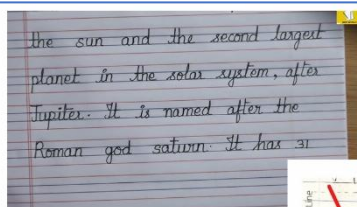 the sun and the second largest
planet in the solar system, after
Jupiter. It is named after the
Roman god saturn. It has 31